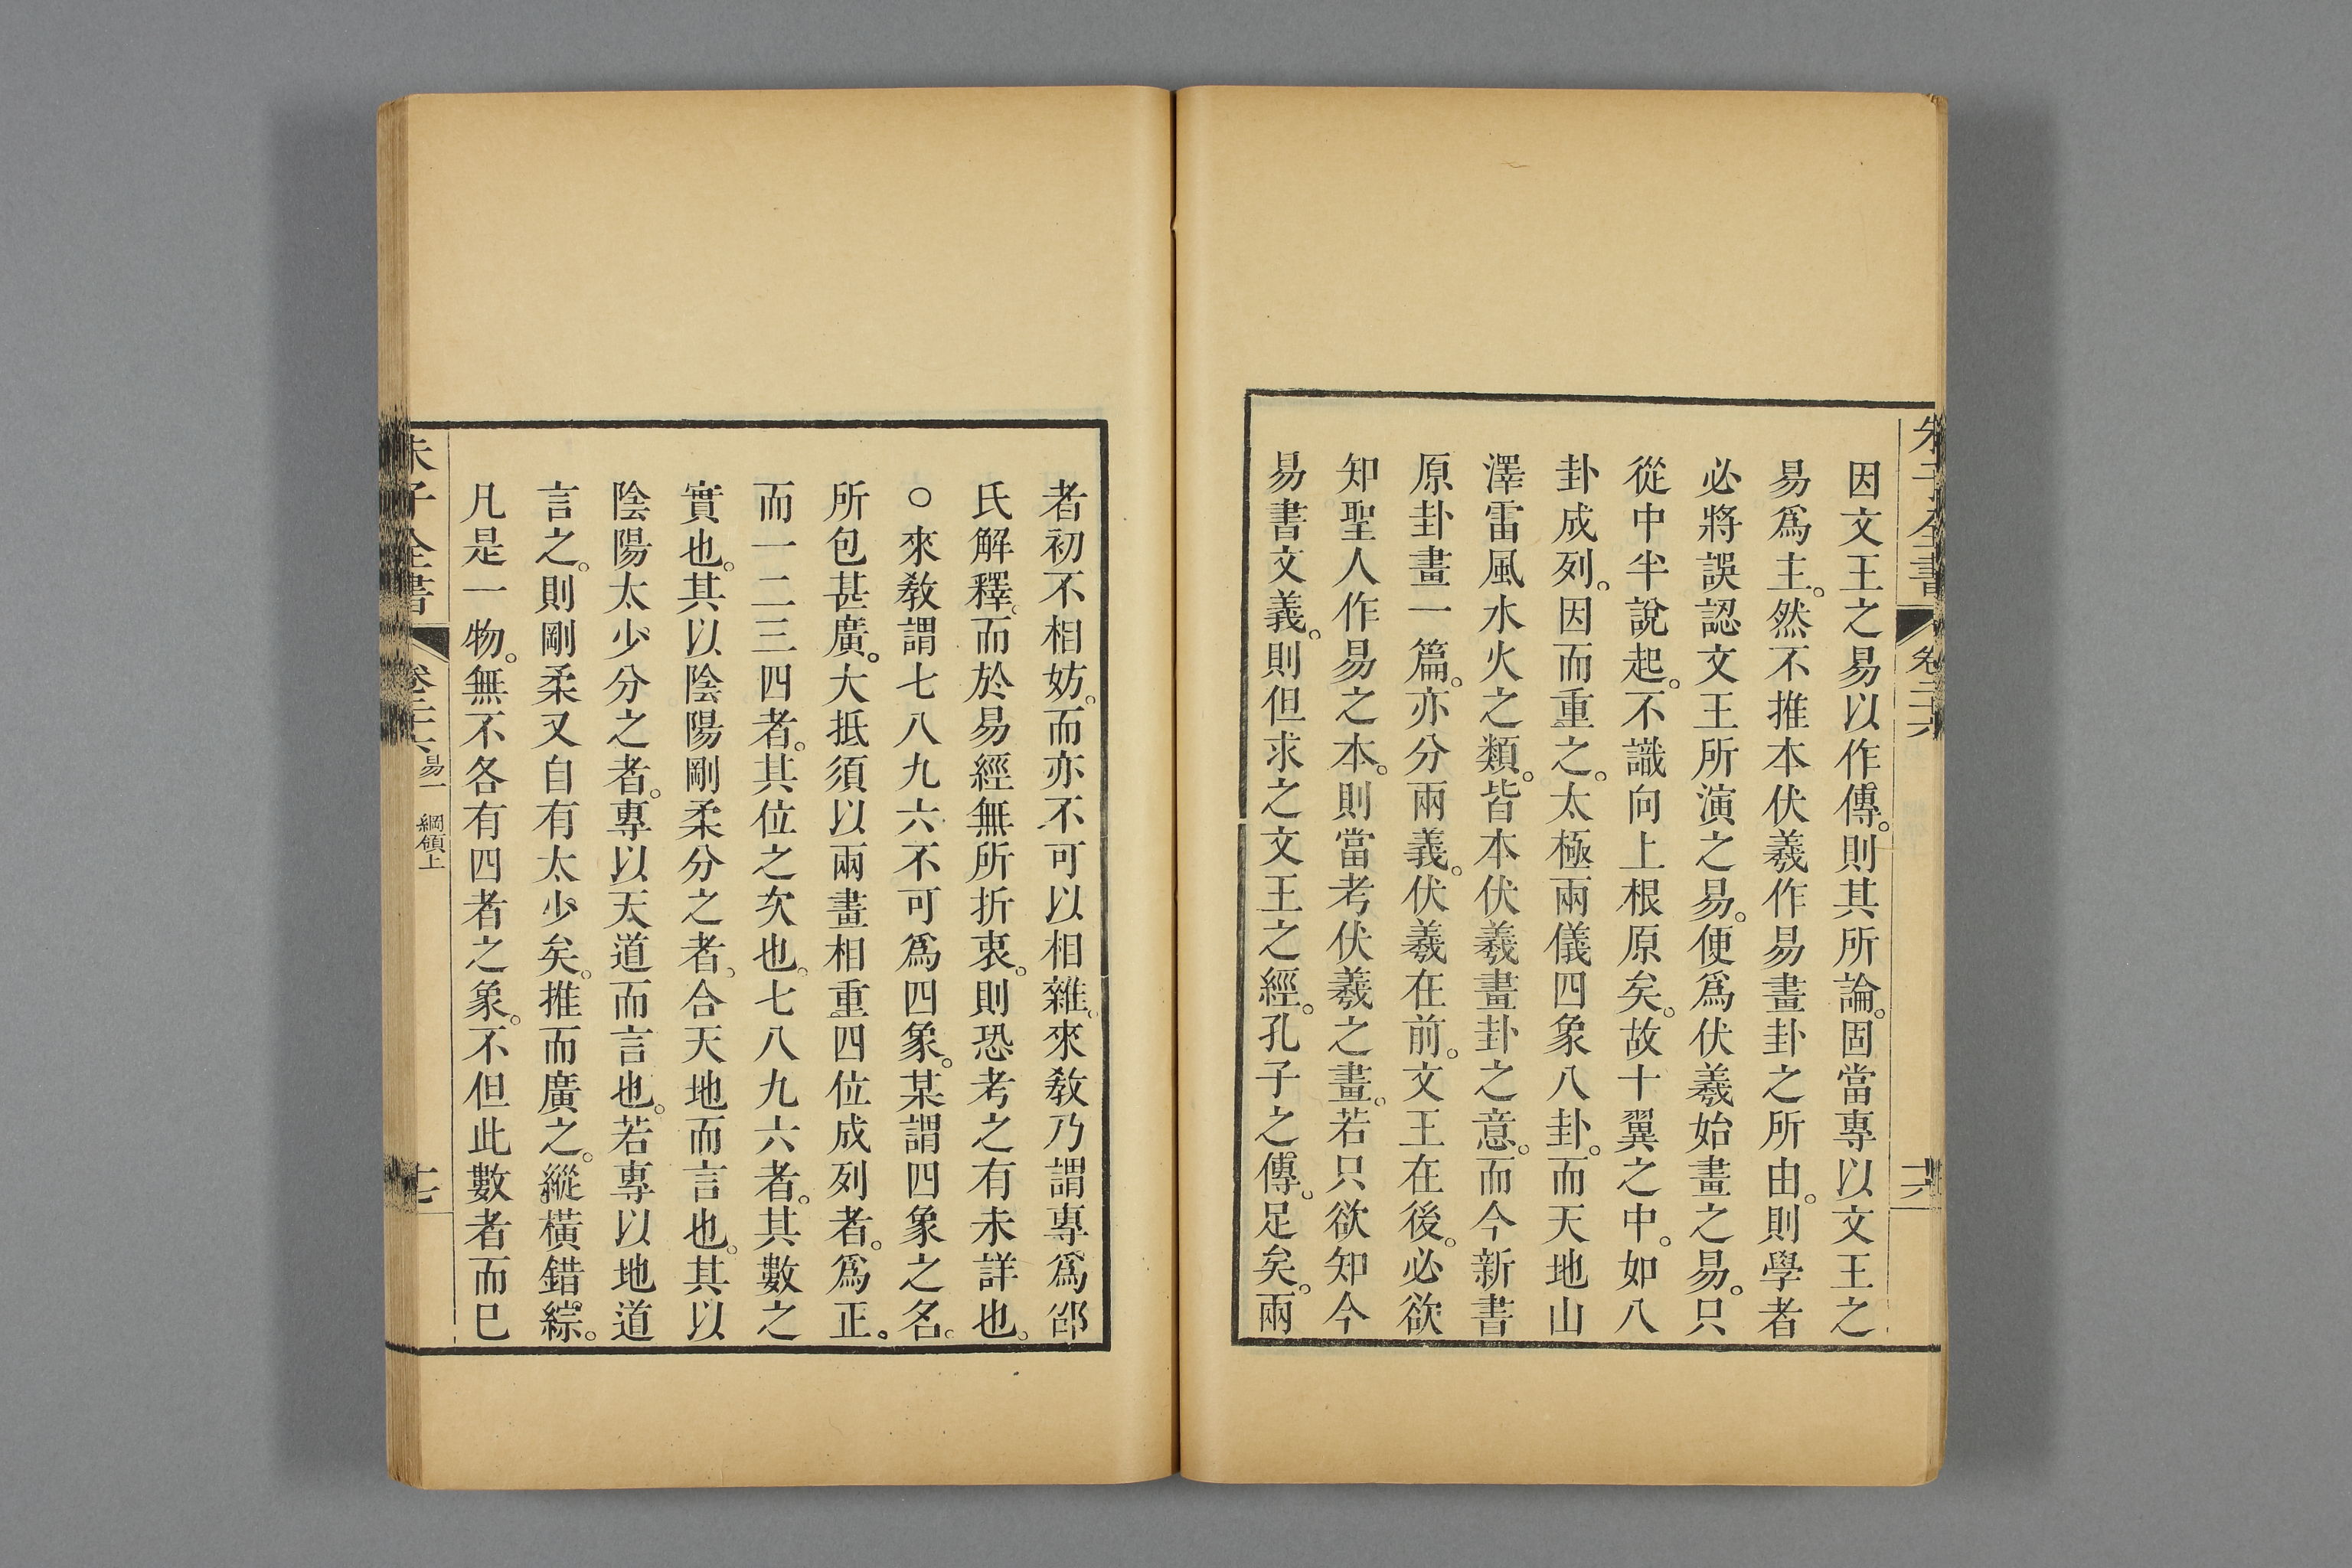 朱子全書 卷二十六 十六
因文王之易以作傳。則其所論。固當專以文王之
易爲主。然不推本伏羲作易畫卦之所由。則學者
必將誤認文王所演之易。便爲伏羲始畫之易。只
從中半說起。不識向上根原矣。故十翼之中。如八
卦成列。因而重之。太極兩儀四象八卦。而天地山
澤雷風水火之類。皆本伏羲畫卦之意。而今新書
原卦畫一篇。亦分兩義。伏羲在前。文王在後。必欲
知聖人作易之本。則當考伏羲之畫。若只欲知今
易書文義。則但求之文王之經。孔子之傳。足矣。兩
者初不相妨。而亦不可以相雜。來敎乃謂專爲邵
氏解釋。而於易經無所折衷。則恐考之有未詳也。
○來敎謂七八九六不可爲四象。某謂四象之名。
所包甚廣。大抵須以兩畫相重四位成列者。爲正。
而一二三四者。其位之次也。七八九六者。其數之
實也。其以陰陽剛柔分之者。合天地而言也。其以
陰陽太少分之者。專以天道而言也。若專以地道
言之。則剛柔又自有太少矣。推而廣之。縱橫錯綜。
凡是一物。無不各有四者之象。不但此數者而已
朱子全書 卷二十六 易一 綱領上 十七